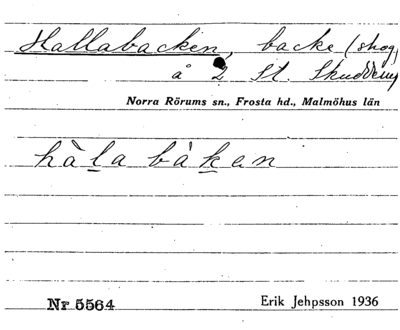 Hallabacken, backe (skog)
å 2 St. Skudderup
Norra Rörums sn., Frosta hd., Malmöhus län
hàla bàkan
Nr 5564
Erik Jehpsson 1936